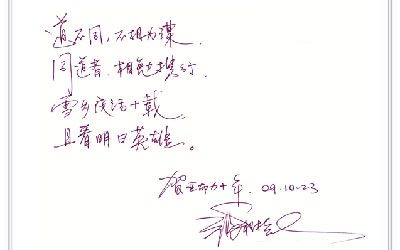 道不同，不相为谋，
同道者，相勉携行，
雪乡夜话十载，
且看明日英雄。
贺亚布力十年，09.10.23